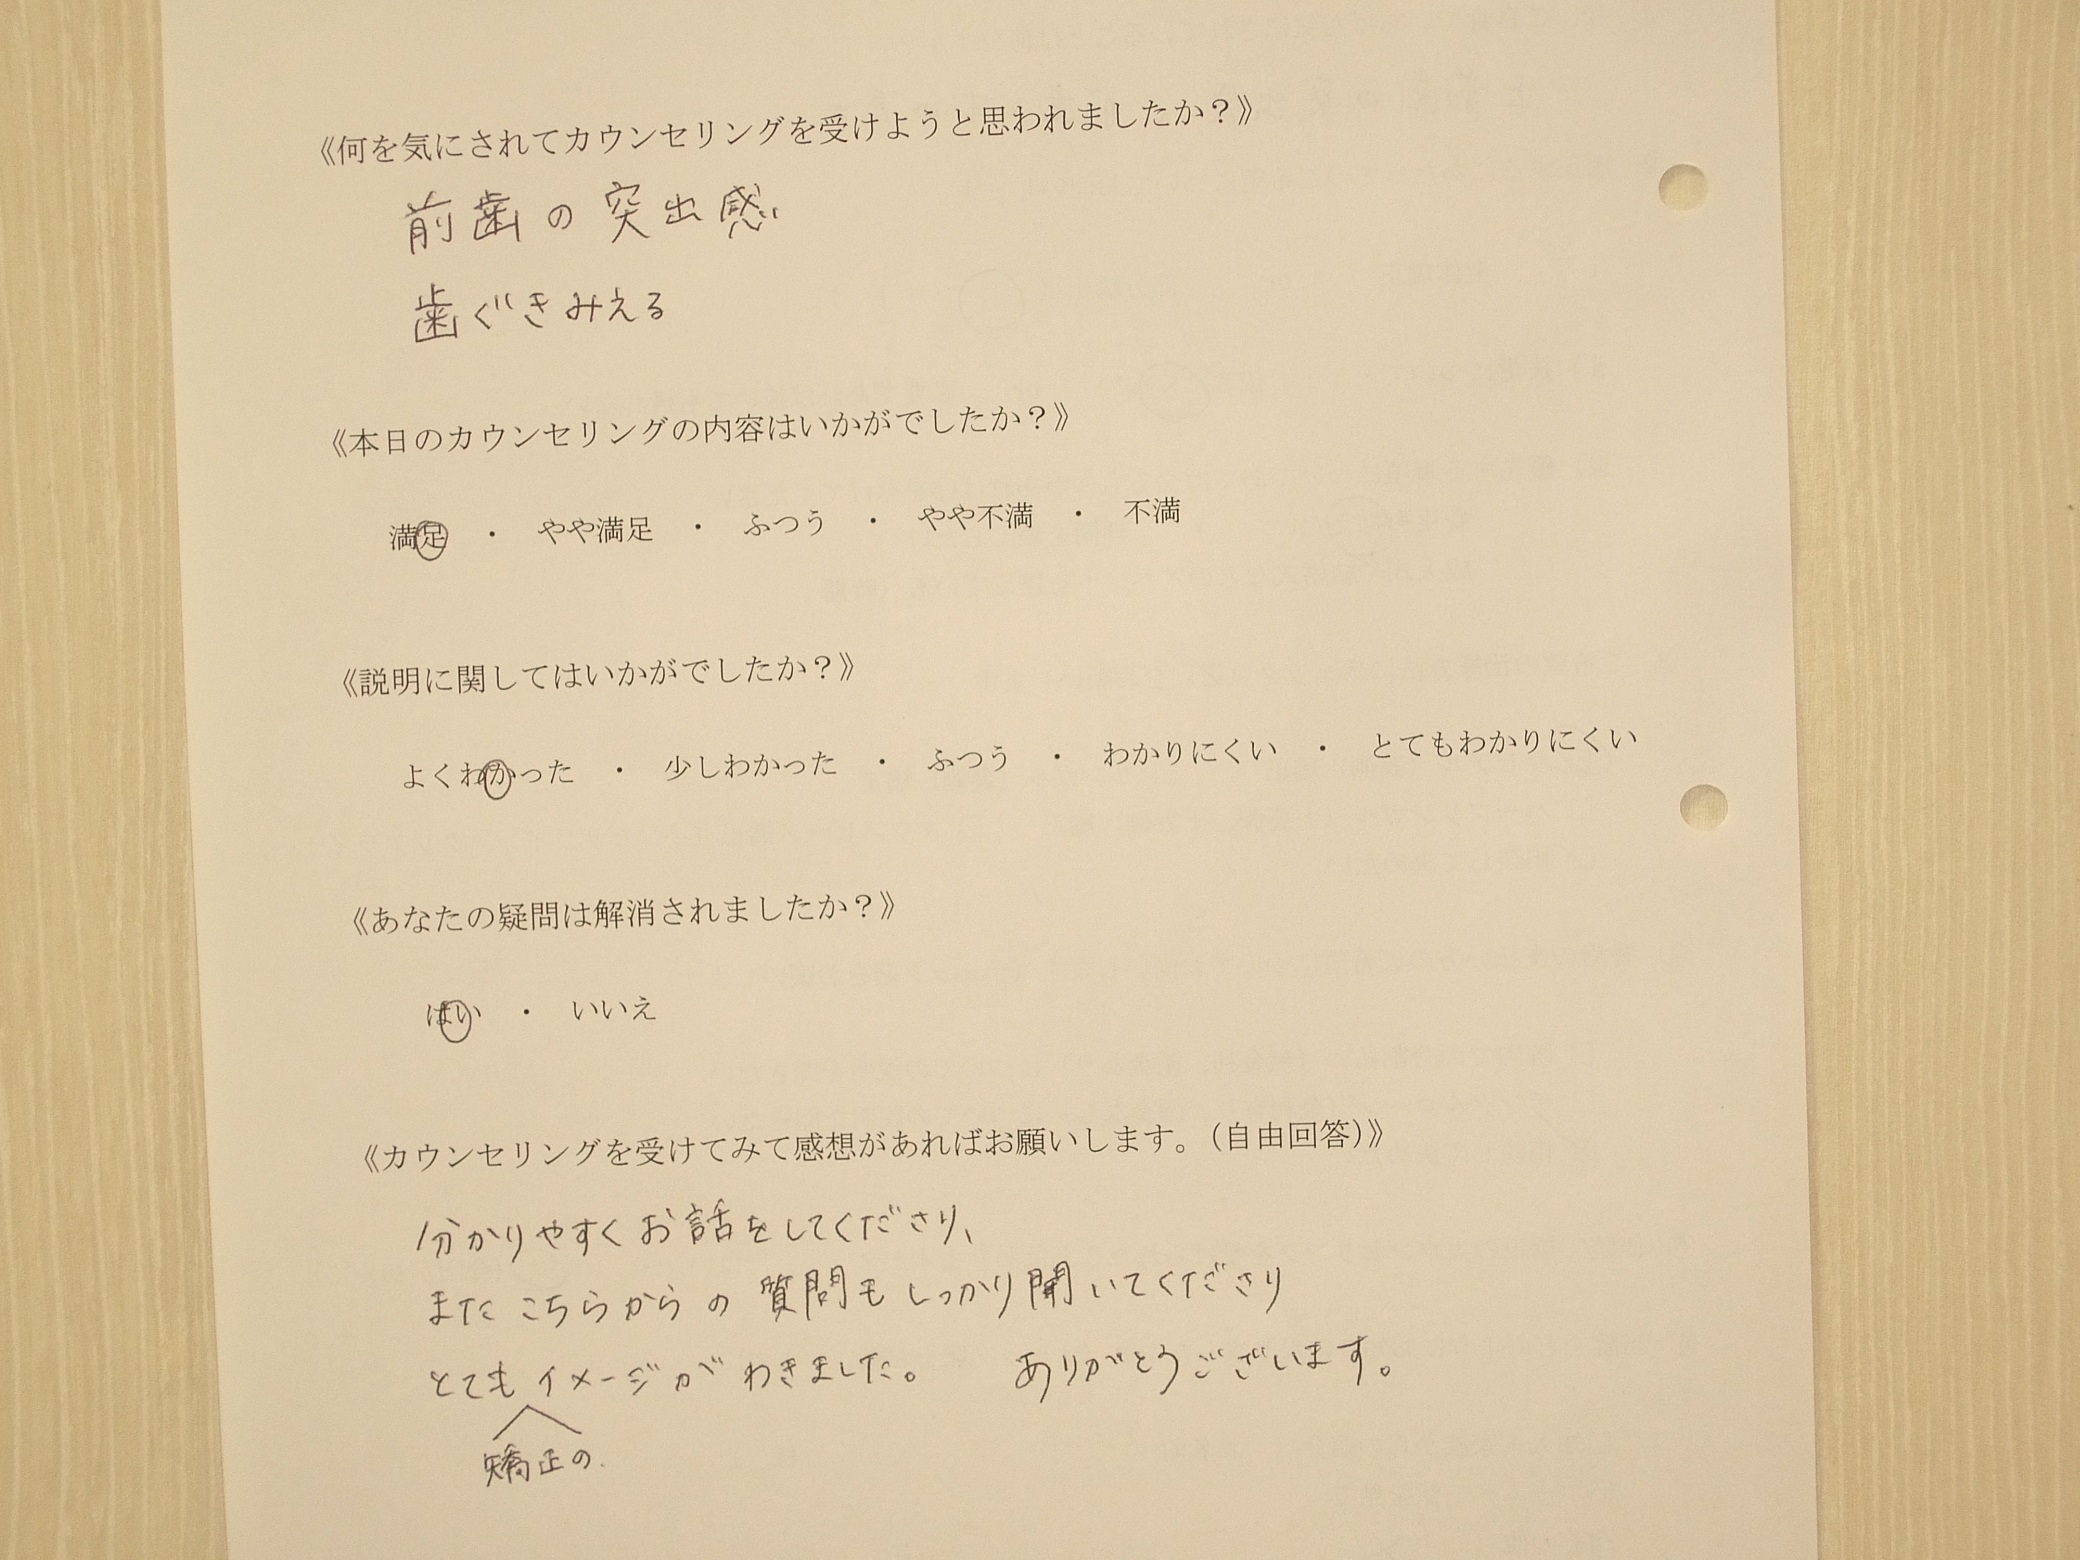 《何を気にされてカウンセリングを受けようと思われましたか？》
前歯の突出感
歯ぐきみえる
《本日のカウンセリングの内容はいかがでしたか？》
満足　・　やや満足　・　ふつう　・　やや不満　・　不満
《説明に関してはいかがでしたか？》
よくわかった　・　少しわかった　・　ふつう　・　わかりにくい　・　とてもわかりにくい
《あなたの疑問は解消されましたか？》
はい　・　いいえ
《カウンセリングを受けてみて感想があればお願いします。（自由回答）》
分かりやすくお話をしてくださり、
またこちらからの質問もしっかり聞いてくださり
とてもイメージがわきました。　ありがとうございます。
矯正の